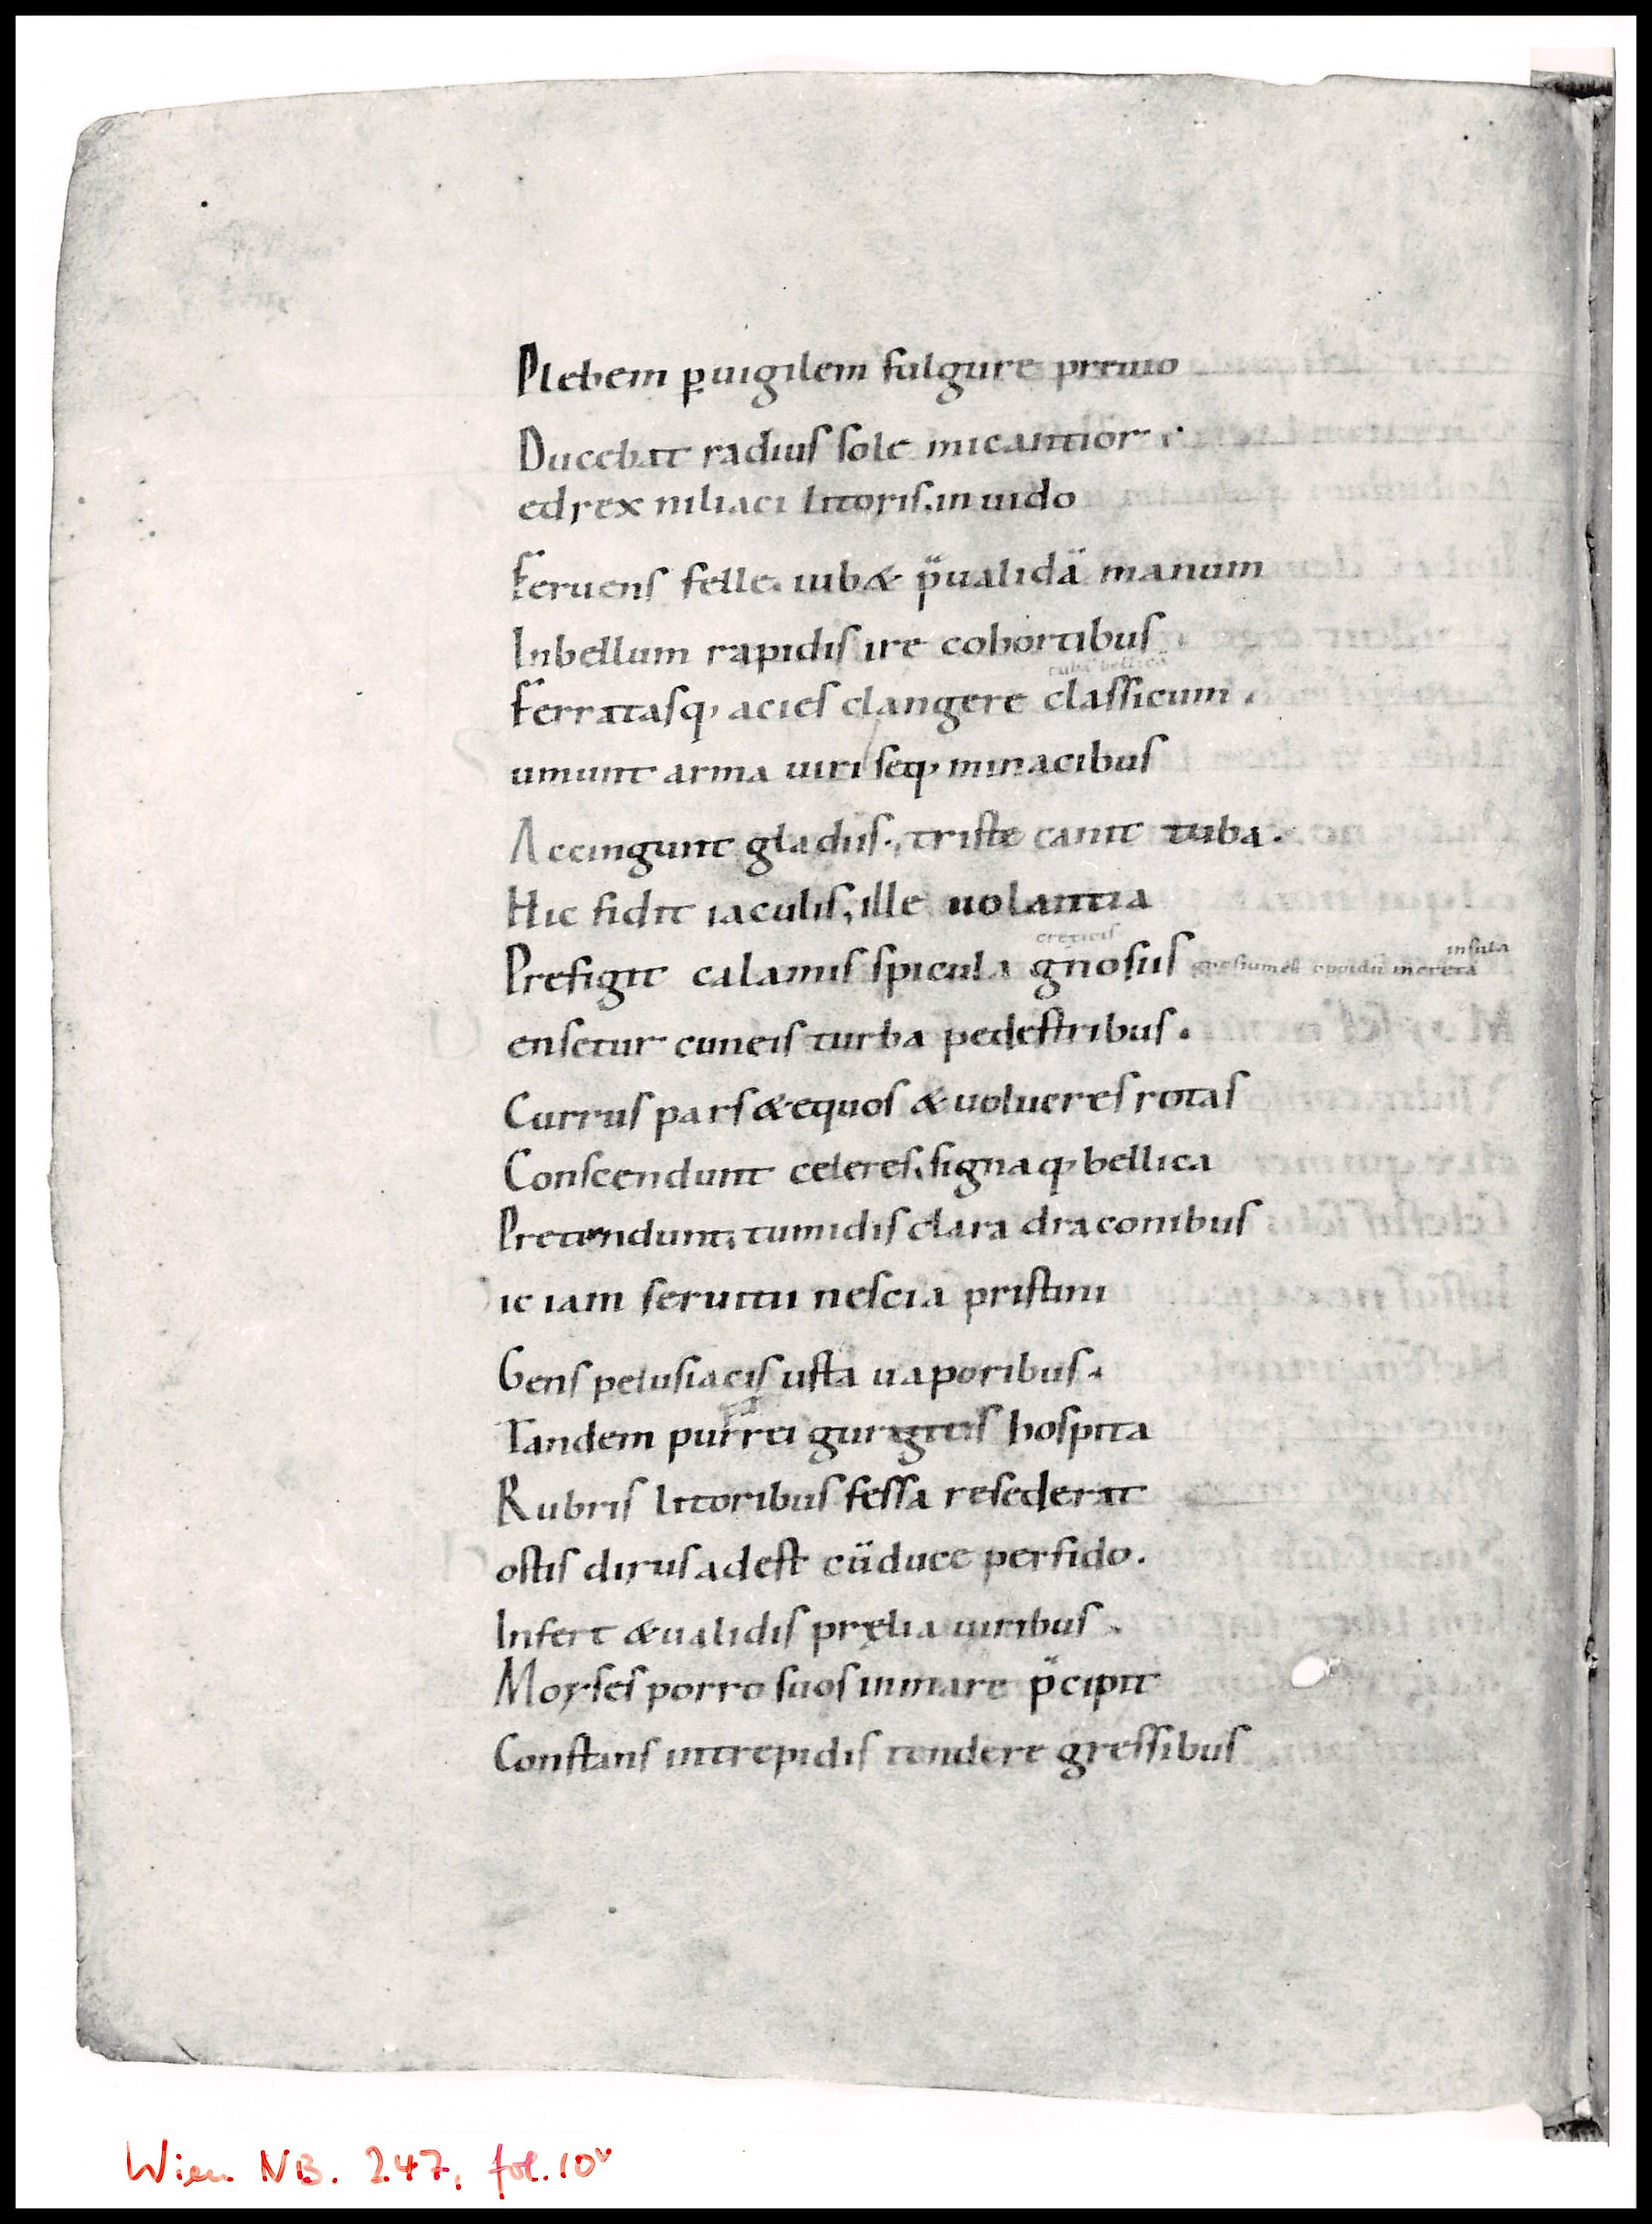 Plebem ꝑuigilem fulgure preuio
Ducebat radius sole micantior
ed rex niliaci litoris. inuido
Feruens felle. iub& p̄ualidā manum
Inbellum rapidis ire cohortibus
tuba bellica
Ferratasq, acies clangere classicum.
umunt arma uiri seq, minacibus
Accingunt gladiis., triste canit tuba.
Hic fidit iaculis, ille uolantia
creticis insula
Prefigit calamis spicula gnosiis
ensetur cuneis turba pedestribus.
Currus pars & equos & uolucres rotas
Conscendunt celeres. signaq, bellica
Pretendunt, tumidis clara draconibus
ic iam seruitii nescia pristini
Gens pelusiacis usta uaporibus.
Tandem purrei gurgitis hospita
Rubris litoribus fessa resederat
ostis dirus adest cū duce perfido.
Infert & ualidis pręlia uiribus.
Moyses porro suos in mare p̄cipit
Constans intrepidis tendere gressibus
Wien NB. 247, fol. 10v